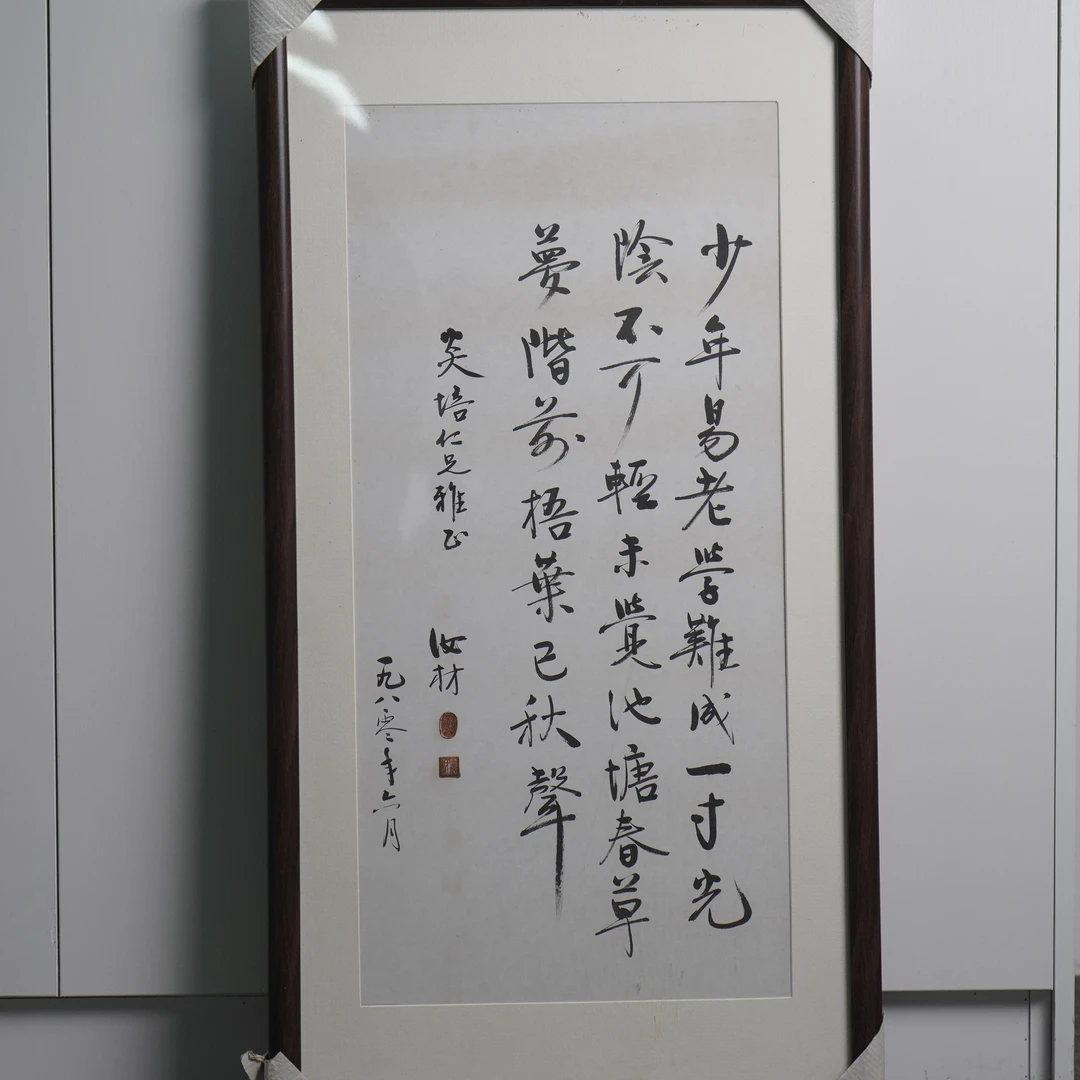 少年易老學難成一寸光
陰不可輕未覺池塘春草
夢階前梧葉已秋聲
炎培仁兄雅正
汝材
一九八零年六月